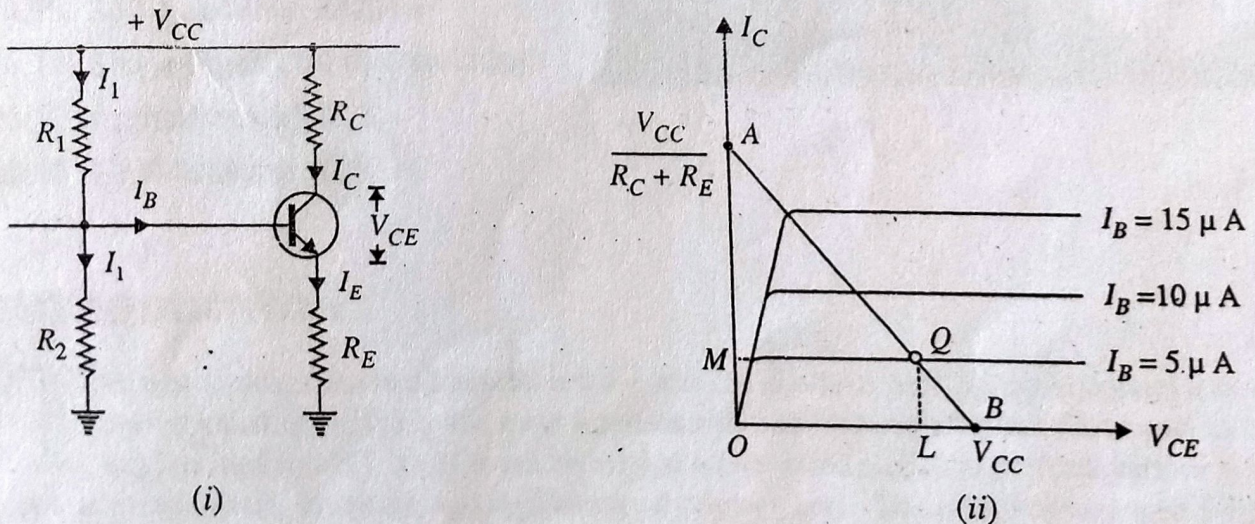 + V_CC
I_1
R_1
R_C
I_C
I_B
V_CE
I_1
I_E
R_2
R_E
(i)
I_C
A
V_CC
R_C + R_E
I_B = 15 μ A
I_B = 10 μ A
Q
M
I_B = 5 μ A
B
O
L
V_CC
V_CE
(ii)